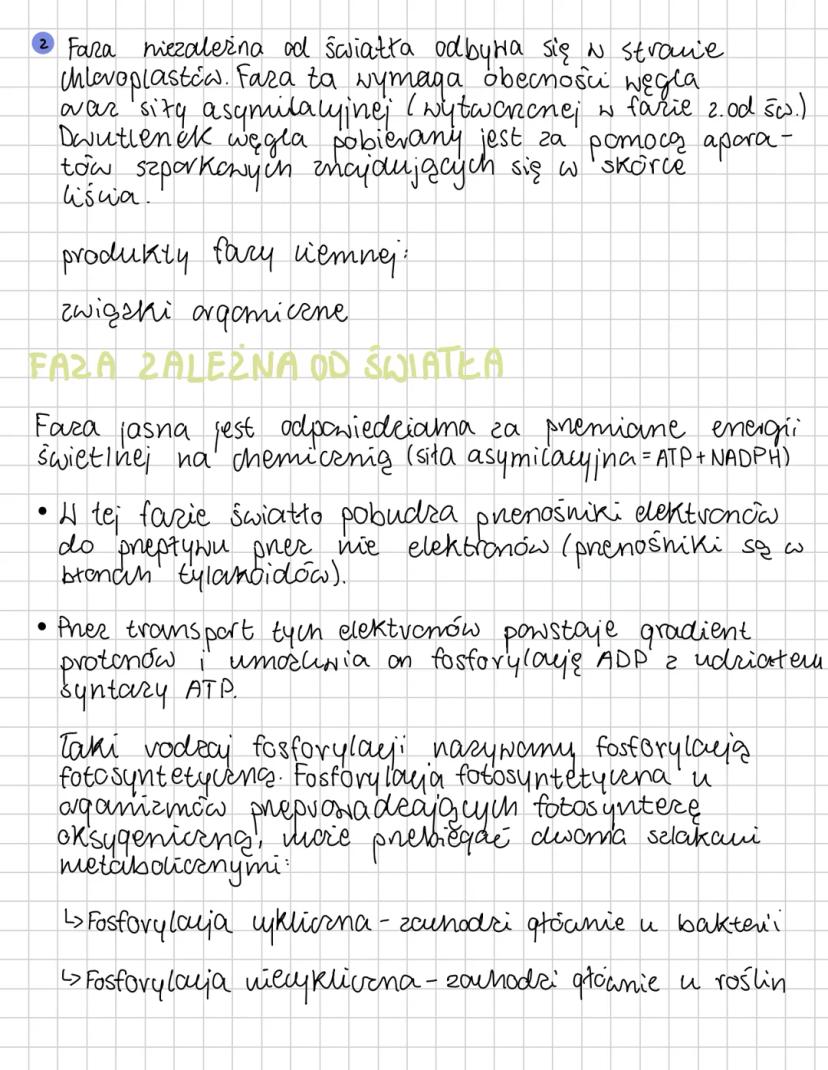 2 Faza niezależna od światła odbywa się w stromie
chloroplastów. Faza ta wymaga obecności węgla
oraz siły asymilacyjnej (wytworzonej w fazie z.od św.)
Dwutlenek węgla pobierany jest za pomocą apara-
tów szparkowych znajdujących się w skórce
liścia.
produkty fazy ciemnej:
związki organiczne
FAZA ZALEŻNA OD ŚWIATŁA
Faza jasna jest odpowiedzialna za przemianę energii
świetlnej na chemicznią (siła asymilacyjna = ATP + NADPH)
• W tej fazie światło pobudza przenośniki elektronów
do przepływu przez nie elektronów (przenośniki są w
błonach tylakoidów).
• Przez transport tych elektronów powstaje gradient
protonów i umożliwia on fosforylację ADP z udziałem
syntazy ATP.
Taki rodzaj fosforylacji nazywamy fosforylacją
fotosyntetyczną. Fosforylacja fotosyntetyczna u
organizmów przeprowadzających fotosyntezę
oksygeniczną, może przebiegać dwoma szlakami
metabolicznymi:
↳ Fosforylacja cykliczna - zachodzi głównie u bakterii
↳ Fosforylacja niecykliczna - zachodzi głównie u roślin